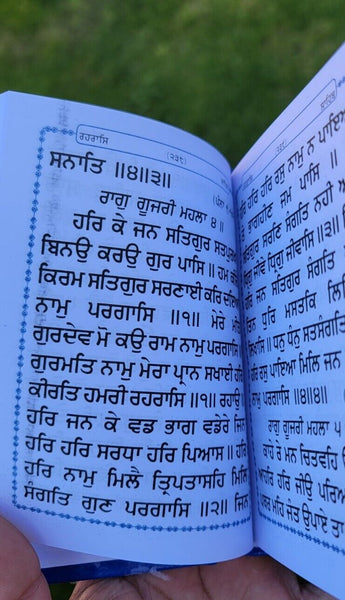 ਰਹਰਾਸਿ
(੨੩੬)
ਸਨਾਤਿ ॥੪॥੩॥
ਰਾਗੁ ਗੂਜਰੀ ਮਹਲਾ ੪ ॥
ਹਰਿ ਕੇ ਜਨ ਸਤਿਗੁਰ ਸਤਪੁਰਖਾ
ਬਿਨਉ ਕਰਉ ਗੁਰ ਪਾਸਿ ॥ ਹਮ
ਕਿਰਮ ਸਤਿਗੁਰ ਸਰਣਾਈ ਕਰਿ ਦਇਆ
ਨਾਮੁ ਪਰਗਾਸਿ ॥੧॥ ਮੇਰੇ
ਗੁਰਦੇਵ ਮੋ ਕਉ ਰਾਮ ਨਾਮੁ ਪਰਗਾਸਿ
ਗੁਰਮਤਿ ਨਾਮੁ ਮੇਰਾ ਪ੍ਰਾਨ ਸਖਾਈ ਹਰਿ
ਕੀਰਤਿ ਹਮਰੀ ਰਹਰਾਸਿ ॥੧॥ ਰਹਾਉ
ਹਰਿ ਜਨ ਕੇ ਵਡ ਭਾਗ ਵਡੇਰੇ ਜਿਨ
ਹਰਿ ਹਰਿ ਸਰਧਾ ਹਰਿ ਪਿਆਸ ॥ ਹਰਿ
ਹਰਿ ਨਾਮੁ ਮਿਲੈ ਤ੍ਰਿਪਤਾਸਹਿ ਮਿਲਿ
ਸੰਗਤਿ ਗੁਣ ਪਰਗਾਸਿ ॥੨॥ ਜਿਨ
ਹਰਿ ਹਰਿ ਰਸੁ ਨਾਮੁ ਨ ਪਾਇਆ
ਭਾਗਹੀਣ ਜਮ ਪਾਸਿ ॥
ਸਤਿਗੁਰ ਸਰਣਿ ਸੰਗਤਿ ਨਹੀ ਆਏ
ਜੀਵੇ ਧ੍ਰਿਗੁ ਜੀਵਾਸਿ ॥੩॥
ਜਨ ਸਤਿਗੁਰ ਸੰਗਤਿ
ਧੁਰਿ ਮਸਤਕਿ
ਲਿਖਾਸਿ ॥ ਧਨੁ ਧੰਨੁ ਸਤਸੰਗਤਿ
ਹਰਿ ਰਸੁ ਪਾਇਆ ਮਿਲਿ ਜਨ
ਪਰਗਾਸਿ ॥੪॥੪॥
ਰਾਗੁ ਗੂਜਰੀ ਮਹਲਾ ੫
ਕਾਹੇ ਰੇ ਮਨ ਚਿਤਵਹਿ
ਆਹਰਿ ਹਰਿ ਜੀਉ ਪਰਿਆ
ਮਹਿ ਜੰਤ ਉਪਾਏ ਤਾ